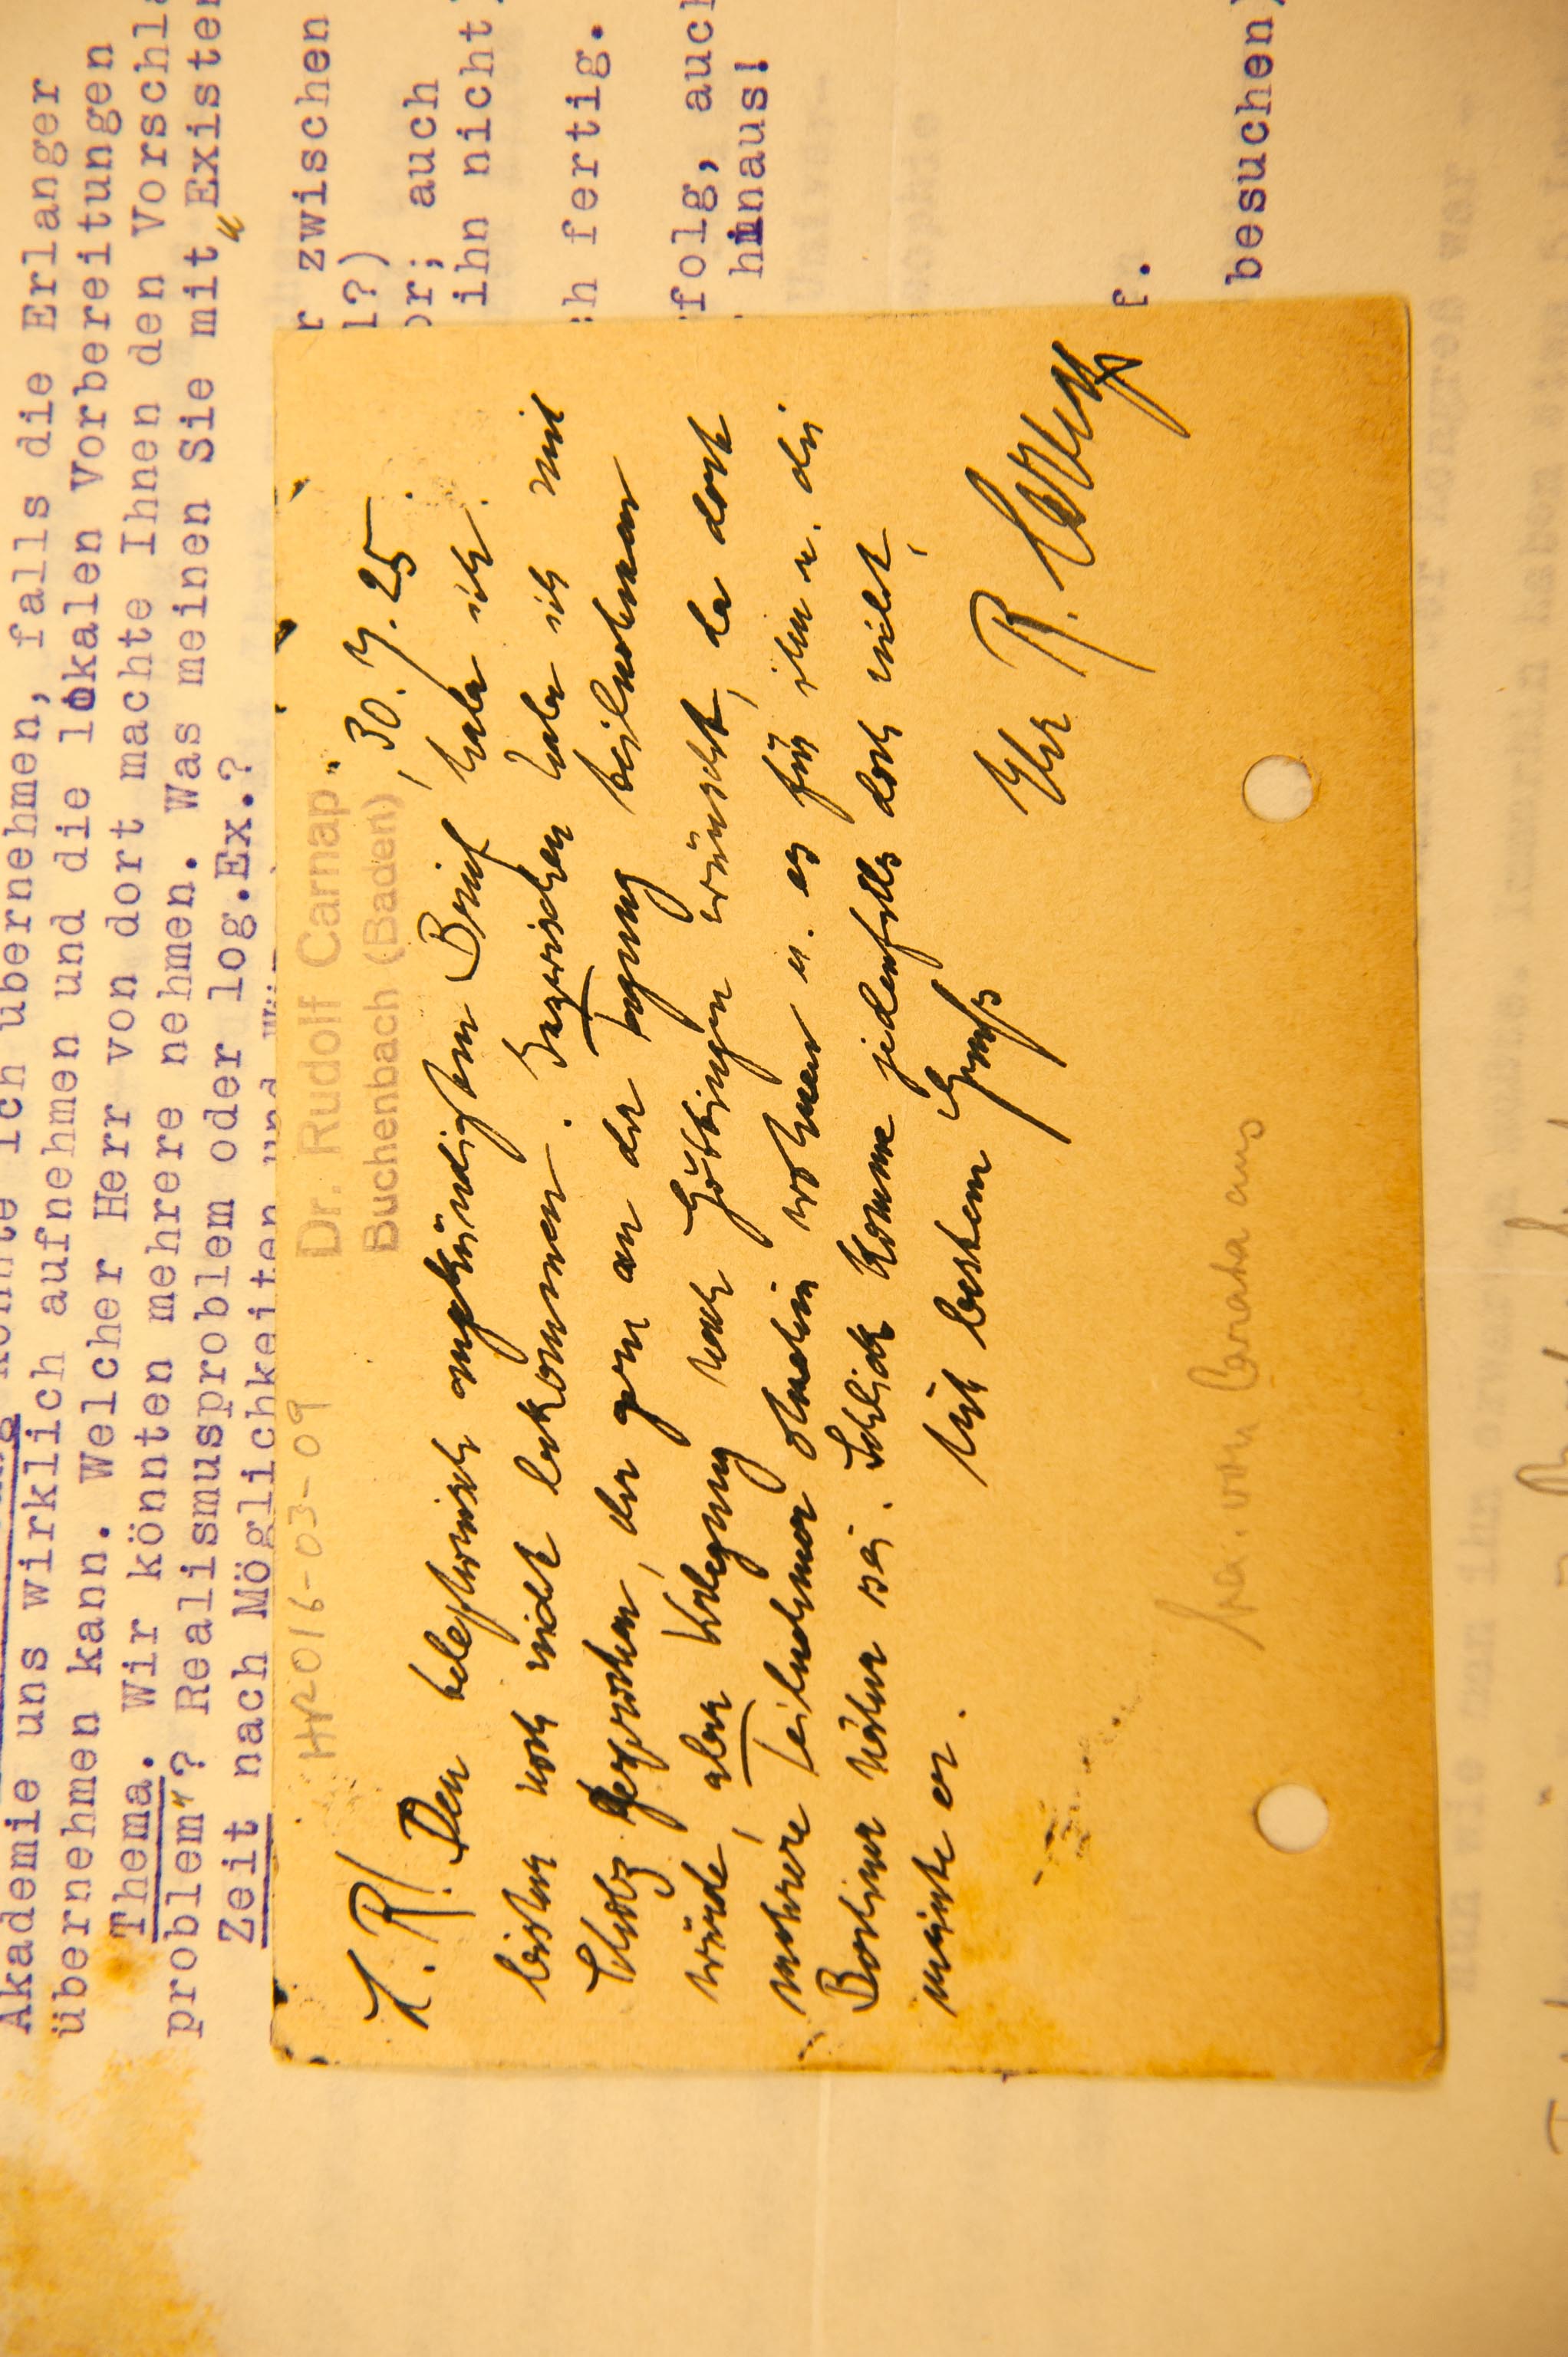 Akademie uns wirklich aufnehmen und die lokalen Vorbereitungen
übernehmen kann. Welcher Herr von dort machte Ihnen den Vorschla
Thema. Wir könnten mehrere nehmen. Was meinen Sie mit „Existen
problem"? Realismusproblem oder log.Ex.?
Zeit nach Möglichkeiten und
ich übernehmen, falls die Erlanger
r zwischen
l?)
or; auch
ihn nicht
ch fertig.
folg, auch
hinaus!
f.
besuchen)
HR 016-03-09
Dr. Rudolf Carnap
Buchenbach (Baden), 30. 7. 25.
L. R! Den telefonisch angekündigten Brief habe ich
bisher noch nicht bekommen. Inzwischen habe ich mit
Scholz gesprochen, der gern an der Tagung teilnehmen
würde, aber Verlegung nach Göttingen wünscht, da dort
mehrere Teilnehmer ohnehin wohnen u. es für ihn u. die
Berliner näher sei. Schlick komme jedenfalls doch nicht,
meinte er.
Mit bestem Gruß
Ihr R. Carnap